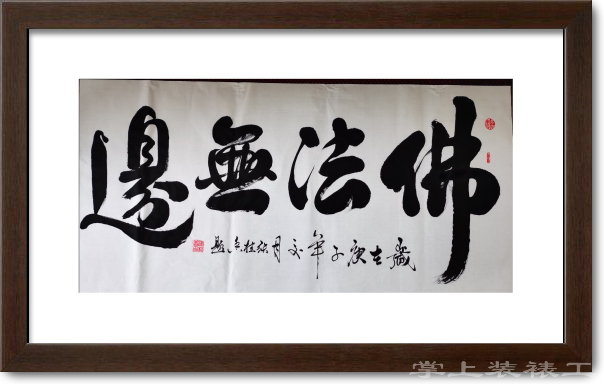 佛法無邊
歲在庚子年
月
題
掌上装裱工